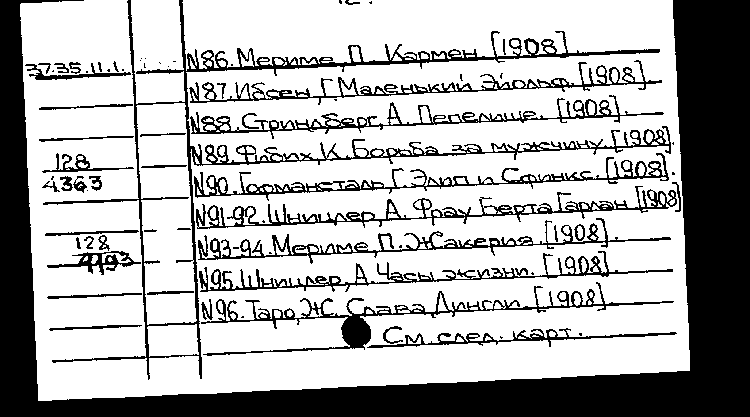 12.
37.35.11.1. N86. Мериме, П. Кармен [1908].
N87. Ибсен, Г. Маленький Эйольф. [1908].
N88. Стриндберг, А. Пепелище. [1908].
128 N89. Фибих, К. Борьба за мужчину. [1908].
4363 N90. Гофмансталь, Г. Эдип и Сфинкс. [1908].
N91-92. Шницлер, А. Фрау Берта Гарлан [1908]
128 N93-94. Мериме, П. Жакерия. [1908].
9193 N95. Шницлер, А. Часы жизни. [1908].
N96. Таро, Ж. Слава Дингли. [1908].
См. след. карт.